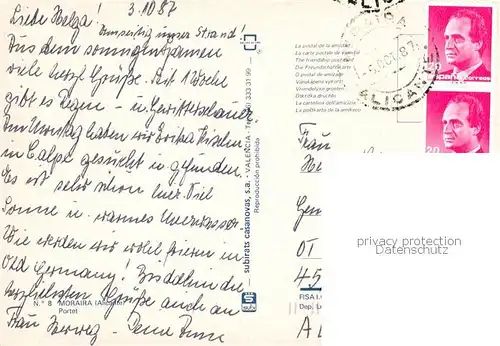 Liebe Helga! 3.10.87
Umseitig unser Strand!
Aus dem sonnigen Spanien
viele herzl. Grüße. Seit 1 Woche
gibt es Regen - u. Gewitterschauer
Am Montag haben wir Erika
in Calpe gesucht u. gefunden.
Es ist sehr schön hier. Viel
Sonne u. warmes Meerwasser.
Wie werden wir wohl frieren in
Old Germany! Bis dahin die
herzlichsten Grüße auch an
Frau - Deine
N.º 8 MORAIRA (Alicante)
Portet
subirats casanovas, s.a. - VALENCIA - Tel. 333 31 99
Reproducción prohibida
subi
La postal de la amistad
La carte de l'amitié
The friendship postcard
Die Freundschaftskarte
O postal de amizade
Vänskapens vykort
Vriendelijke groeten
La cartolina dell'amicizia
ALICANTE
OCT.87
España
España
20
Frau
OT
45
FISA I.G.
Dep. L
privacy protection
Datenschutz